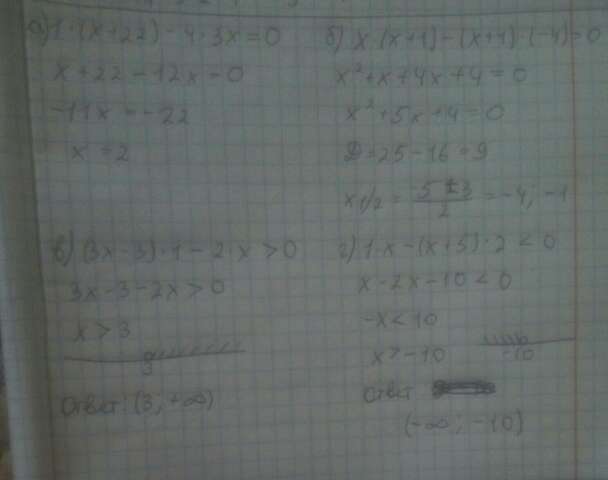 а) 1·(x+22) - 4·3x=0
x+22-12x=0
-11x=-22
x=2
б) x·(x+1)-(x+4)·(-4)=0
x²+x+4x+4=0
x²+5x+4=0
D=25-16=9
x1/2 = 5±3/2 = -4; -1
в) (3x-3)·1-2·x>0
3x-3-2x>0
x>3
3
Ответ: (3; +∞)
г) 1·x-(x+5)·2<0
x-2x-10<0
-x<10
x>-10
-10
Ответ
(-∞; -10)